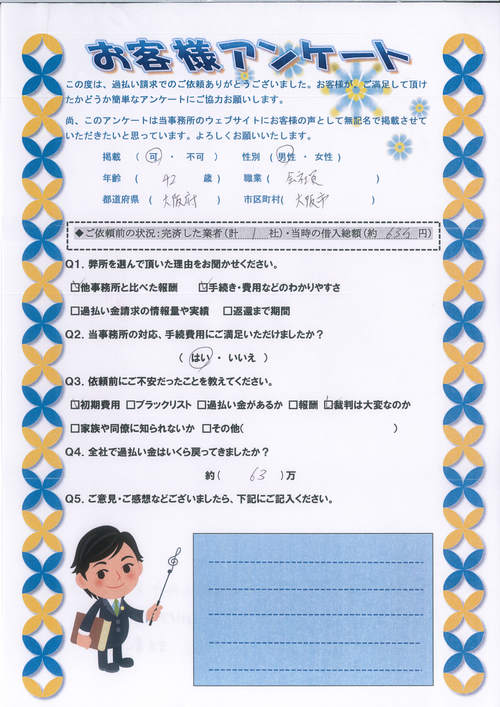 お客様アンケート
この度は、過払い請求でのご依頼ありがとうございました。お客様が、ご満足して頂け
たかどうか簡単なアンケートにご協力お願いします。
尚、このアンケートは当事務所のウェブサイトにお客様の声として無記名で掲載させて
いただきたいと思っています。よろしくお願いいたします。
掲載 ( 可 ・ 不可 ) 性別 ( 男性 ・ 女性 )
年齢 ( 42 歳 ) 職業 ( 会社員 )
都道府県 ( 大阪府 ) 市区町村( 大阪市 )
◆ご依頼前の状況:完済した業者(計 1 社)・当時の借入総額(約 円)
Q1. 弊所を選んで頂いた理由をお聞かせください。
☑他事務所と比べた報酬 ☑手続き・費用などのわかりやすさ
□過払い金請求の情報量や実績 □返還まで期間
Q2. 当事務所の対応、手続費用にご満足いただけましたか?
( はい ・ いいえ )
Q3. 依頼前にご不安だったことを教えてください。
☑初期費用 □ブラックリスト □過払い金があるか □報酬 ☑裁判は大変なのか
□家族や同僚に知られないか □その他( )
Q4. 全社で過払い金はいくら戻ってきましたか?
約( 63 )万
Q5. ご意見・ご感想などございましたら、下記にご記入ください。